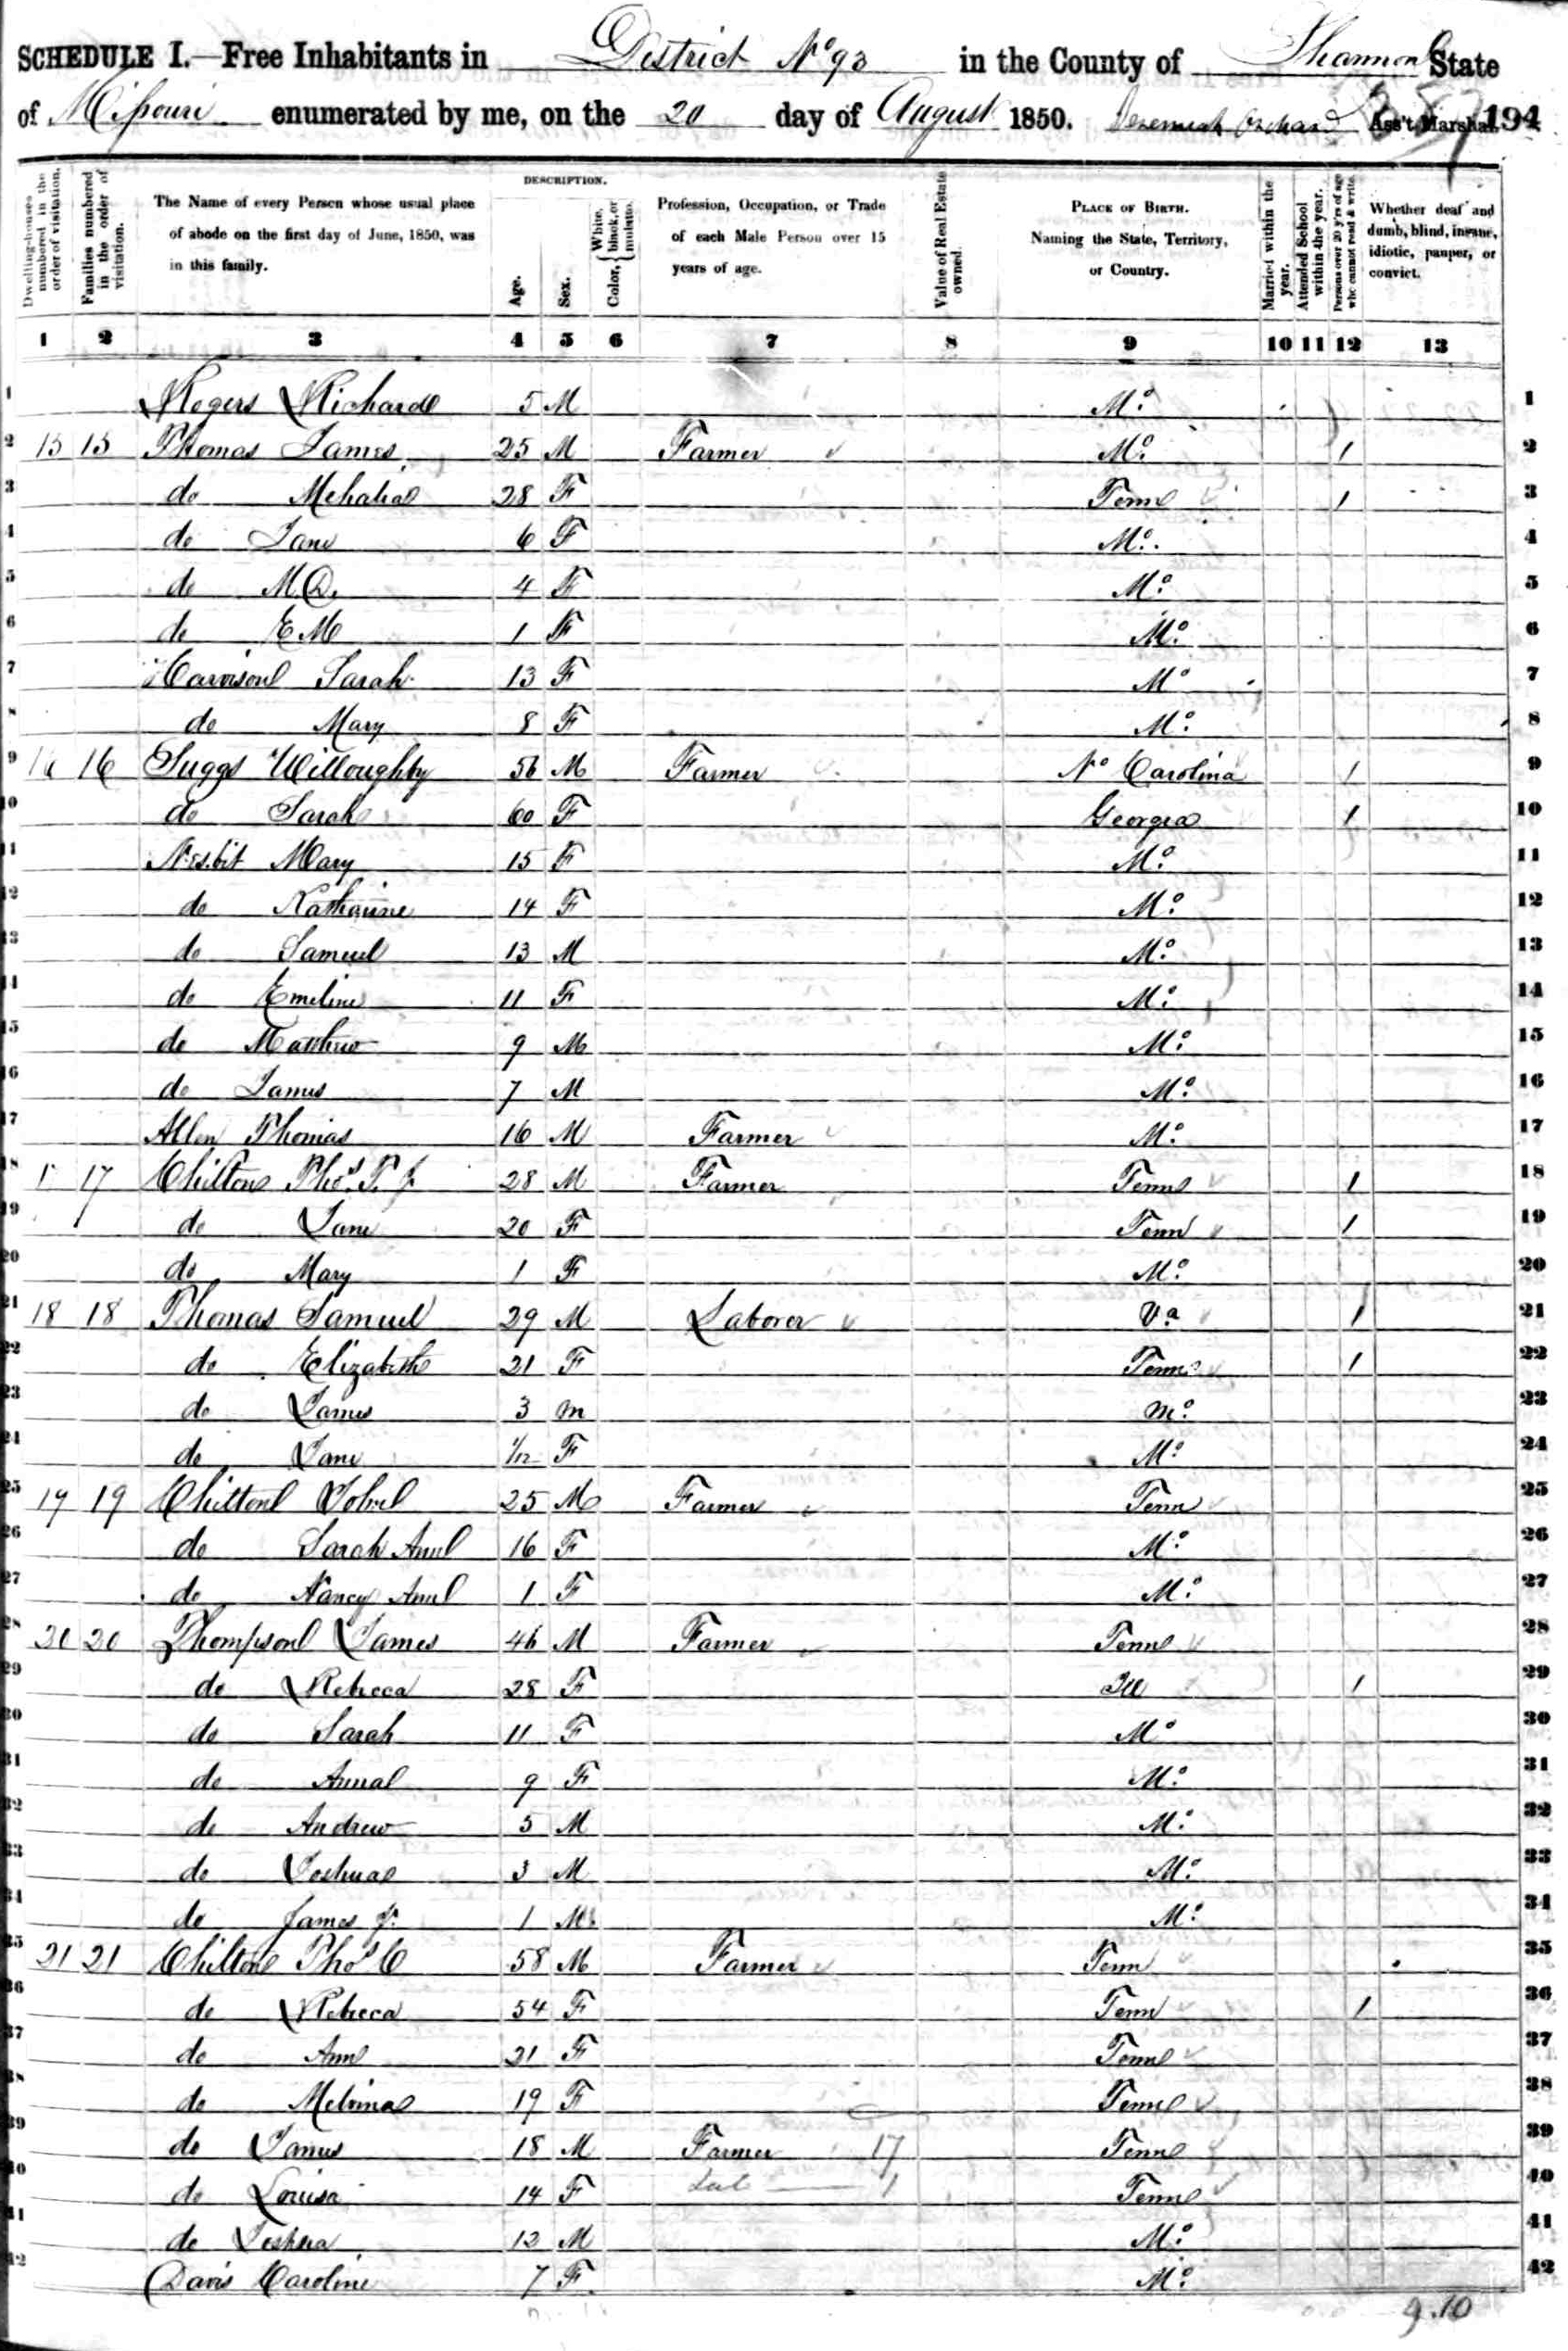 SCHEDULE I.—Free Inhabitants in District No 93 in the County of Shannon State
of Missouri enumerated by me, on the 20 day of August 1850. Jeremiah Orchard Ass't Marshal. 194
Dwelling-houses numbered in the order of visitation.
Families numbered in the order of visitation.
The Name of every Person whose usual place of abode on the first day of June, 1850, was in this family.
DESCRIPTION.
Age.
Sex.
Color, { White, black, or mulatto.
Profession, Occupation, or Trade of each Male Person over 15 years of age.
Value of Real Estate owned.
PLACE OF BIRTH. Naming the State, Territory, or Country.
Married within the year.
Attended School within the year.
Persons over 20 y'rs of age who cannot read & write.
Whether deaf and dumb, blind, insane, idiotic, pauper, or convict.
1 2 3 4 5 6 7 8 9 10 11 12 13
1 Rogers Richard 5 M Mo. 1
2 15 15 Thomas James 25 M Farmer Mo. / 2
3 do Mehala 28 F Tenn / 3
4 do Jane 6 F Mo. 4
5 do M.D. 4 F Mo. 5
6 do E M 1 F Mo. 6
7 Harrison Sarah 13 F Mo 7
8 do Mary 8 F Mo. 8
9 16 16 Suggs Willoughby 56 M Farmer No Carolina / 9
10 do Sarah 60 F Georgia / 10
11 Nesbit Mary 15 F Mo. 11
12 do Katharine 14 F Mo. 12
13 do Samuel 13 M Mo. 13
14 do Emeline 11 F Mo. 14
15 do Matthew 9 M Mo. 15
16 do James 7 M Mo. 16
17 Allen Thomas 16 M Farmer Mo. 17
18 17 17 Chilton Thos. T. J. 28 M Farmer Tenn / 18
19 do Jane 20 F Tenn / 19
20 do Mary 1 F Mo. 20
21 18 18 Thomas Samuel 29 M Laborer Va / 21
22 do Elizabeth 21 F Tenn / 22
23 do James 3 m mo. 23
24 do Jane 1/12 F Mo. 24
25 19 19 Chilton John 25 M Farmer Tenn 25
26 do Sarah Ann 16 F Mo. 26
27 do Nancy Ann 1 F Mo. 27
28 20 20 Thompson James 46 M Farmer Tenn 28
29 do Rebecca 28 F Ill / 29
30 do Sarah 11 F Mo 30
31 do Anna 9 F Mo. 31
32 do Andrew 5 M Mo. 32
33 do Joshua 3 M Mo. 33
34 do James Jr. 1 M Mo. 34
35 21 21 Chilton Thos C 58 M Farmer Tenn 35
36 do Rebeca 54 F Tenn / 36
37 do Ann 21 F Tenn 37
38 do Melvina 19 F Tenn 38
39 do James 18 M Farmer 17 Tenn 39
40 do Louisa 14 F Lab 1 Tenn 40
41 do Joshua 12 M Mo. 41
42 Davis Caroline 7 F Mo. 42
9.10